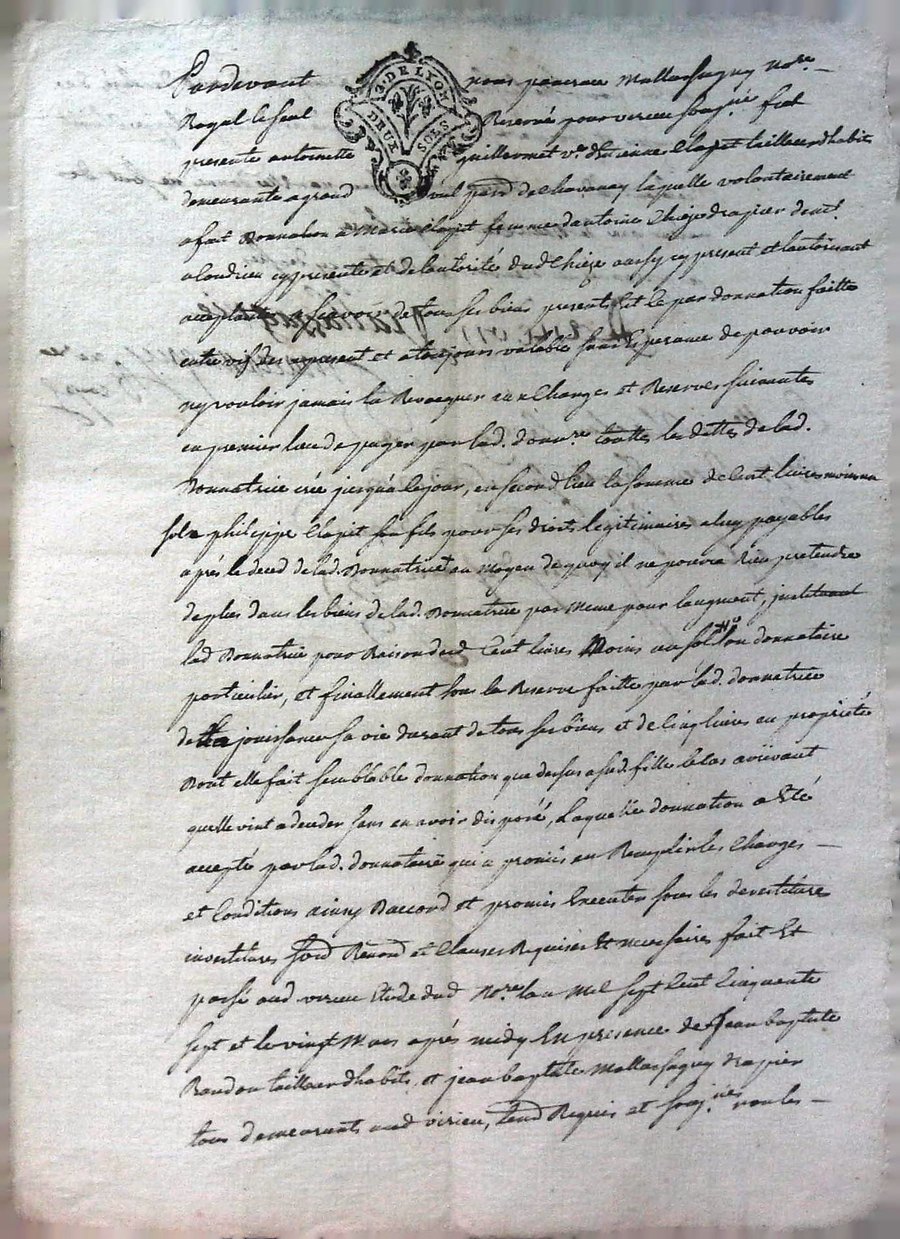 G. DE LYON
DEUX SOLS
Pardevant nous Mallassagny no.re
Royal Reservé pour virieu soussigné fut
presente antoinette guillermet v.e d'Etienne Clapit tailleur d'habits
demeurante a grand par.sse de Chavanay laquelle volontairement
a fait donnation a Marie Clapit femme d'antoine Chieze drapier dem.t
a Condrieu cy presente et de l'autorité dud Chieze aussy cy present et l'autorisant
acceptante a sçavoir de tous ses biens presents et ce par donnation faitte
entre vifs des a present et a toujours valable sans Esperance de pouvoir
ny vouloir jamais la Revocquer aux Charges et Reserves suivantes
en premier lieu de payer par lad. donn.re touttes les dettes de lad.
Donnatrice crée jusqu'a ce jour, en second lieu la somme de Cent livres moins un
sol a philippe Clapit son fils pour ses droits legitimaires a luy payables
après le deced de lad. Donnatrice au moyen de quoy il ne pourra rien pretendre
de plus dans les biens de lad. Donnatrice pas meme pour l'augment, instituant
lad Donnatrice pour Raison desd Cent livres Moins un sol son donnataire
particulier, et finallement sous la Reserve faitte par lad. donnatrice
de la jouissance sa vie durant de tous ses biens et de Cinq livres en proprieté
Dont elle fait semblable donnation que dessus a sad. fille le cas arrivant
quelle vint a deceder sans en avoir disposé, Laquelle donnation a Eté
accepté par lad. donnataire qui a promis en Remplir les Charges —
et Conditions ainsy D'accord et promis Executer sous les devestitures
investitures et Clauses Requises et necessaires fait Et
passé aud virieu Etude dud No.re l'an Mil Sept Cent Cinquante
Sept et le vingt Mars après midy En presence de Jean baptiste
Baudon tailleur d'habits, et jean baptiste Mallassagny drapier
tous demeurants aud virieu, Requis et soussig.nés —